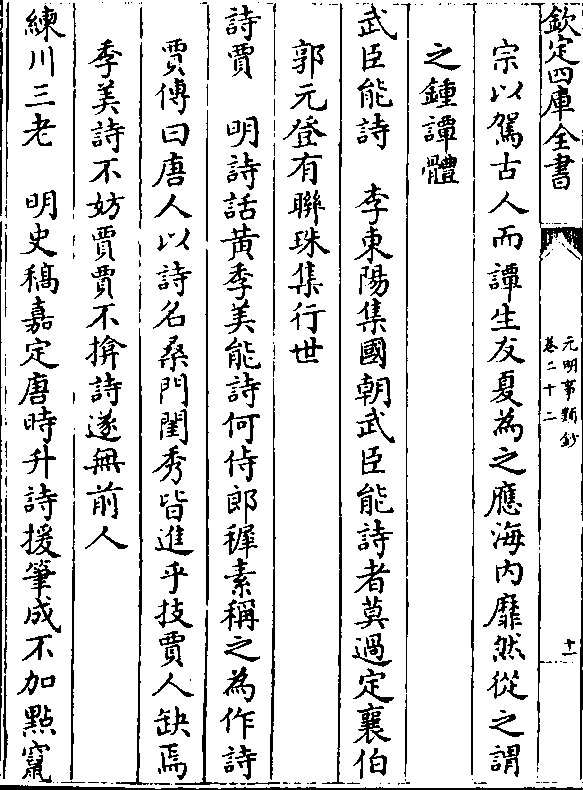 欽定四庫全書
元明事類鈔
卷二十二
十一
宗以駕古人而譚生友夏為之應海内靡然從之謂
之鍾譚體
武臣能詩　李東陽集國朝武臣能詩者莫過定襄伯
郭元登有聯珠集行世
詩賈　明詩話黃季美能詩何侍郎穉素稱之為作詩
賈傅曰唐人以詩名桑門閨秀皆進乎技賈人缺焉
季美詩不妨賈賈不揜詩遂無前人
練川三老　明史稿嘉定唐時升詩援筆成不加點竄